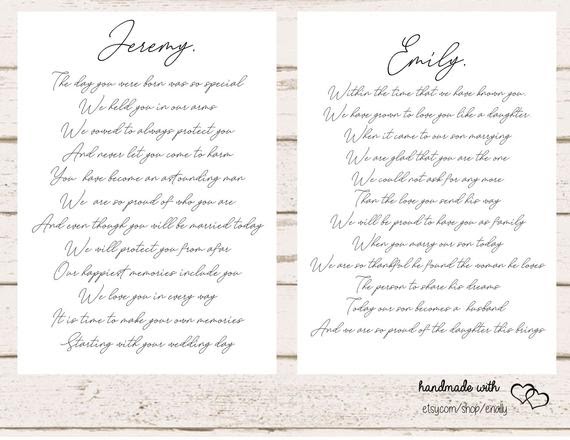 Jeremy.
The day you were born was so special
We held you in our arms
We vowed to always protect you
And never let you come to harm
You have become an astounding man
We are so proud of who you are
And even though you will be married today
We will protect you from afar
Our happiest memories include you
We love you in every way
It is time to make your own memories
Starting with your wedding day
Emily.
Within the time that we have known you.
We have grown to love you like a daughter
When it came to our son marrying
We are glad that you are the one
We could not ask for any more
Than the love you send his way
We will be proud to have you as family
When you marry our son today
We are so thankful he found the woman he loves
The person to share his dreams
Today our son becomes a husband
And we are so proud of the daughter this brings
handmade with
etsy.com/shop/enolly